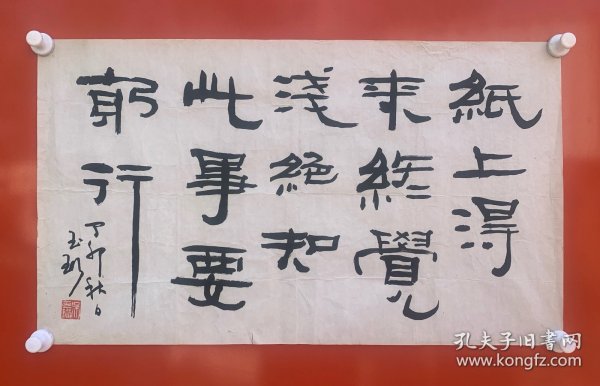 紙上得
来終覺
淺絶知
此事要
躬行
丁卯秋日
孔夫子旧书网
www.kongfz.com